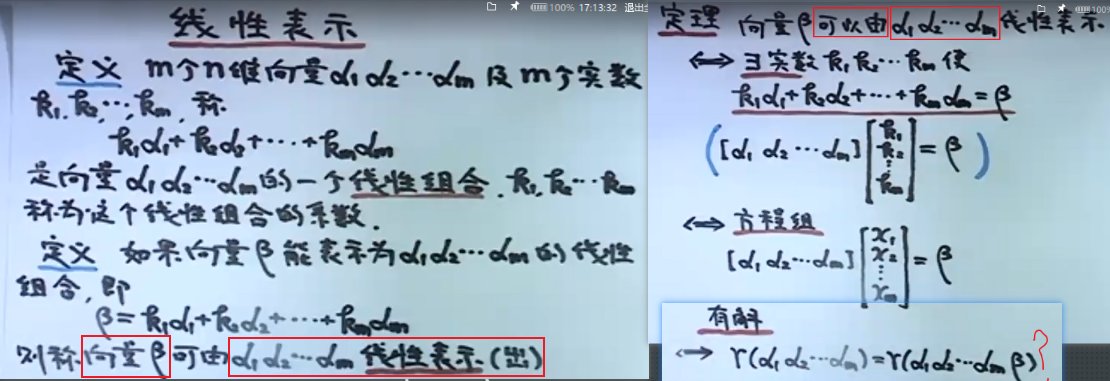 100% 17:13:32 退出全
线性表示
定义 m个n维向量α₁α₂…αₘ及m个实数
k₁,k₂,…,kₘ,称
k₁α₁+k₂α₂+…+kₘαₘ
是向量α₁α₂…αₘ的一个线性组合.k₁,k₂…kₘ
称为这个线性组合的系数.
定义 如果向量β能表示为α₁α₂…αₘ的线性
组合,即
β=k₁α₁+k₂α₂+…+kₘαₘ
则称向量β可由α₁α₂…αₘ线性表示(出)
100%
定理 向量β可以由α₁α₂…αₘ线性表示
⟺ ∃实数k₁k₂…kₘ使
k₁α₁+k₂α₂+…+kₘαₘ=β
([α₁ α₂ … αₘ][k₁ k₂ ⋮ kₘ]=β)
⟺ 方程组
[α₁ α₂…αₘ][x₁ x₂ ⋮ xₘ]=β
有解
⟺ r(α₁α₂…αₘ)=r(α₁α₂…αₘ β)?